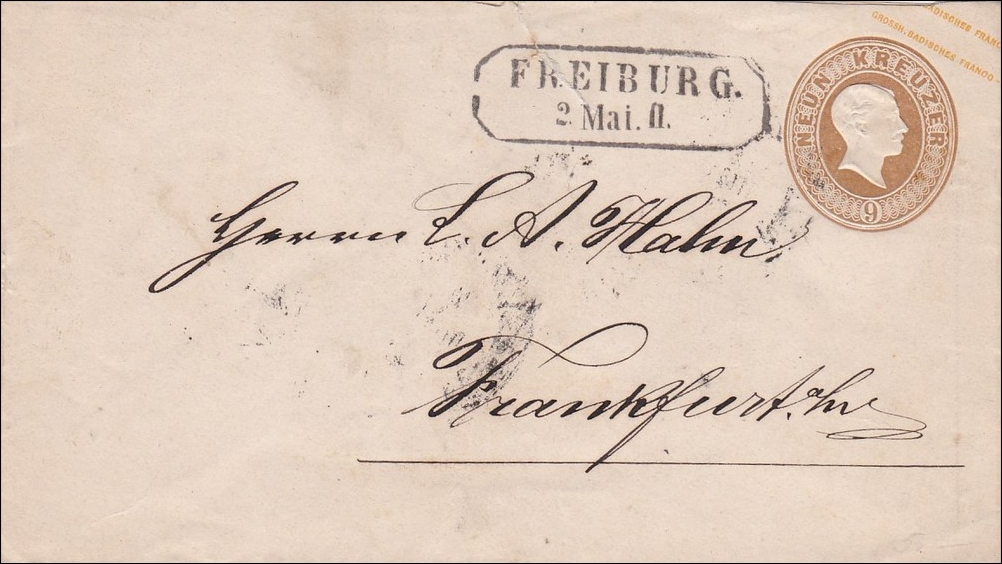 ADISCHES FRANC
GROSSH. BADISCHES FRANCO
NEUN KREUZER
9
FREIBURG.
2 Mai. II.
Herrn L. A. Hahn
Frankfurt